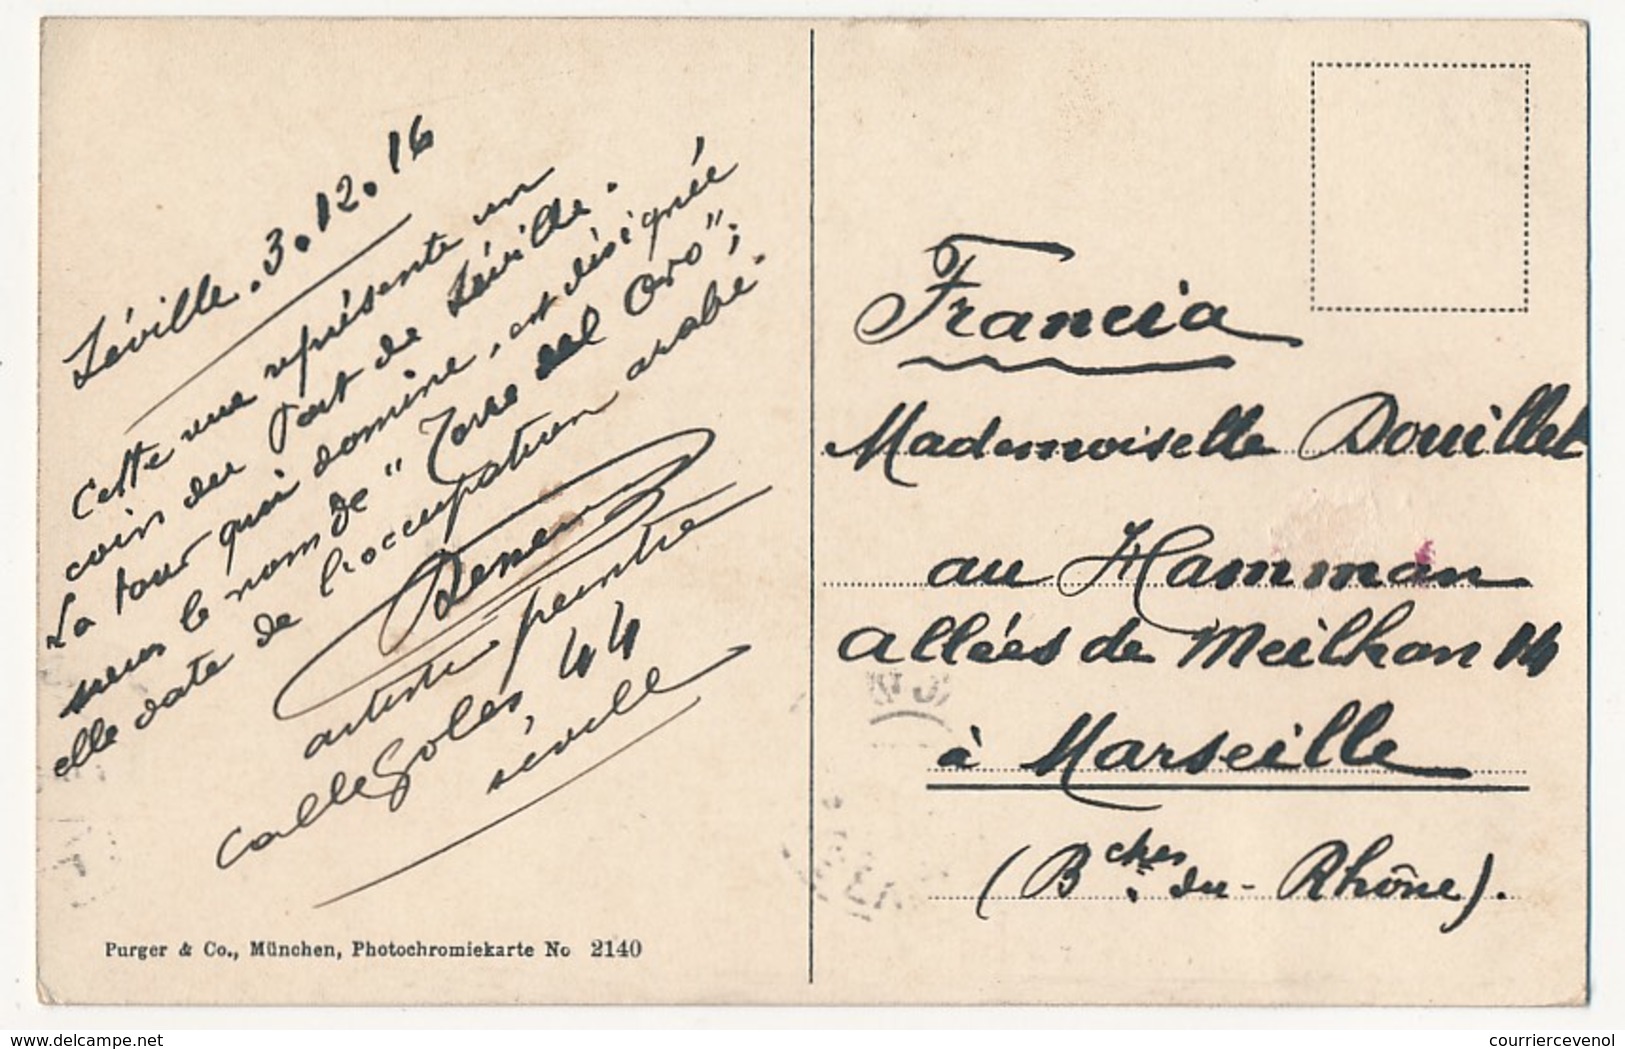 Séville. 3.12.16
Cette vue représente un
coin du Port de Séville.
La tour qui domine, est désignée
sous le nom de "Torre del Oro";
elle date de l'occupation arabe.
artiste peintre
Calle Goles, 44
séville
Purger & Co., München, Photochromiekarte No 2140
Francia
Mademoiselle Douillet
au Hamman
Allées de Meilhan 14
à Marseille
(Bches. du-Rhône).
www.delcampe.net
courriercevenol